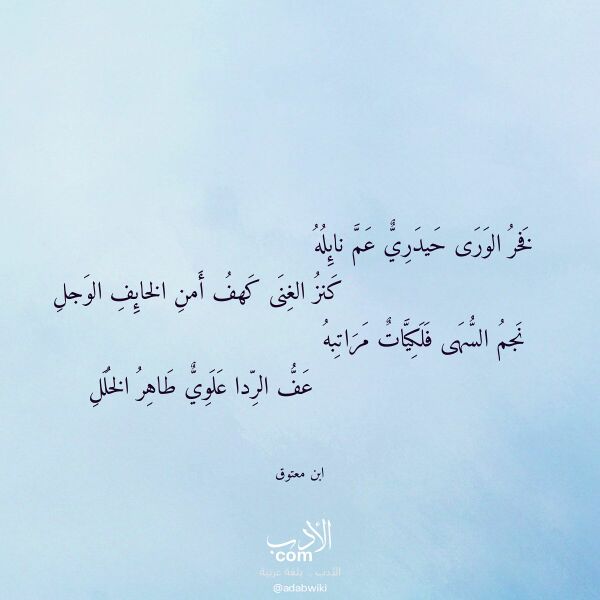 فَخرُ الوَرَى حَيدَرِيٌّ عَمَّ نايِلُهُ
كَنزُ الغِنَى كَهفُ أَمنِ الخايِفِ الوَجلِ
نَجمُ السُّهَى فَلَكِيَّاتٌ مَرَاتِبهُ
عَفُّ الرِّدا عَلَوِيٌّ طَاهِرُ الخُلَلِ
ابن معتوق
الأدب
com
الأدب .. بلغة عربية
@adabwiki